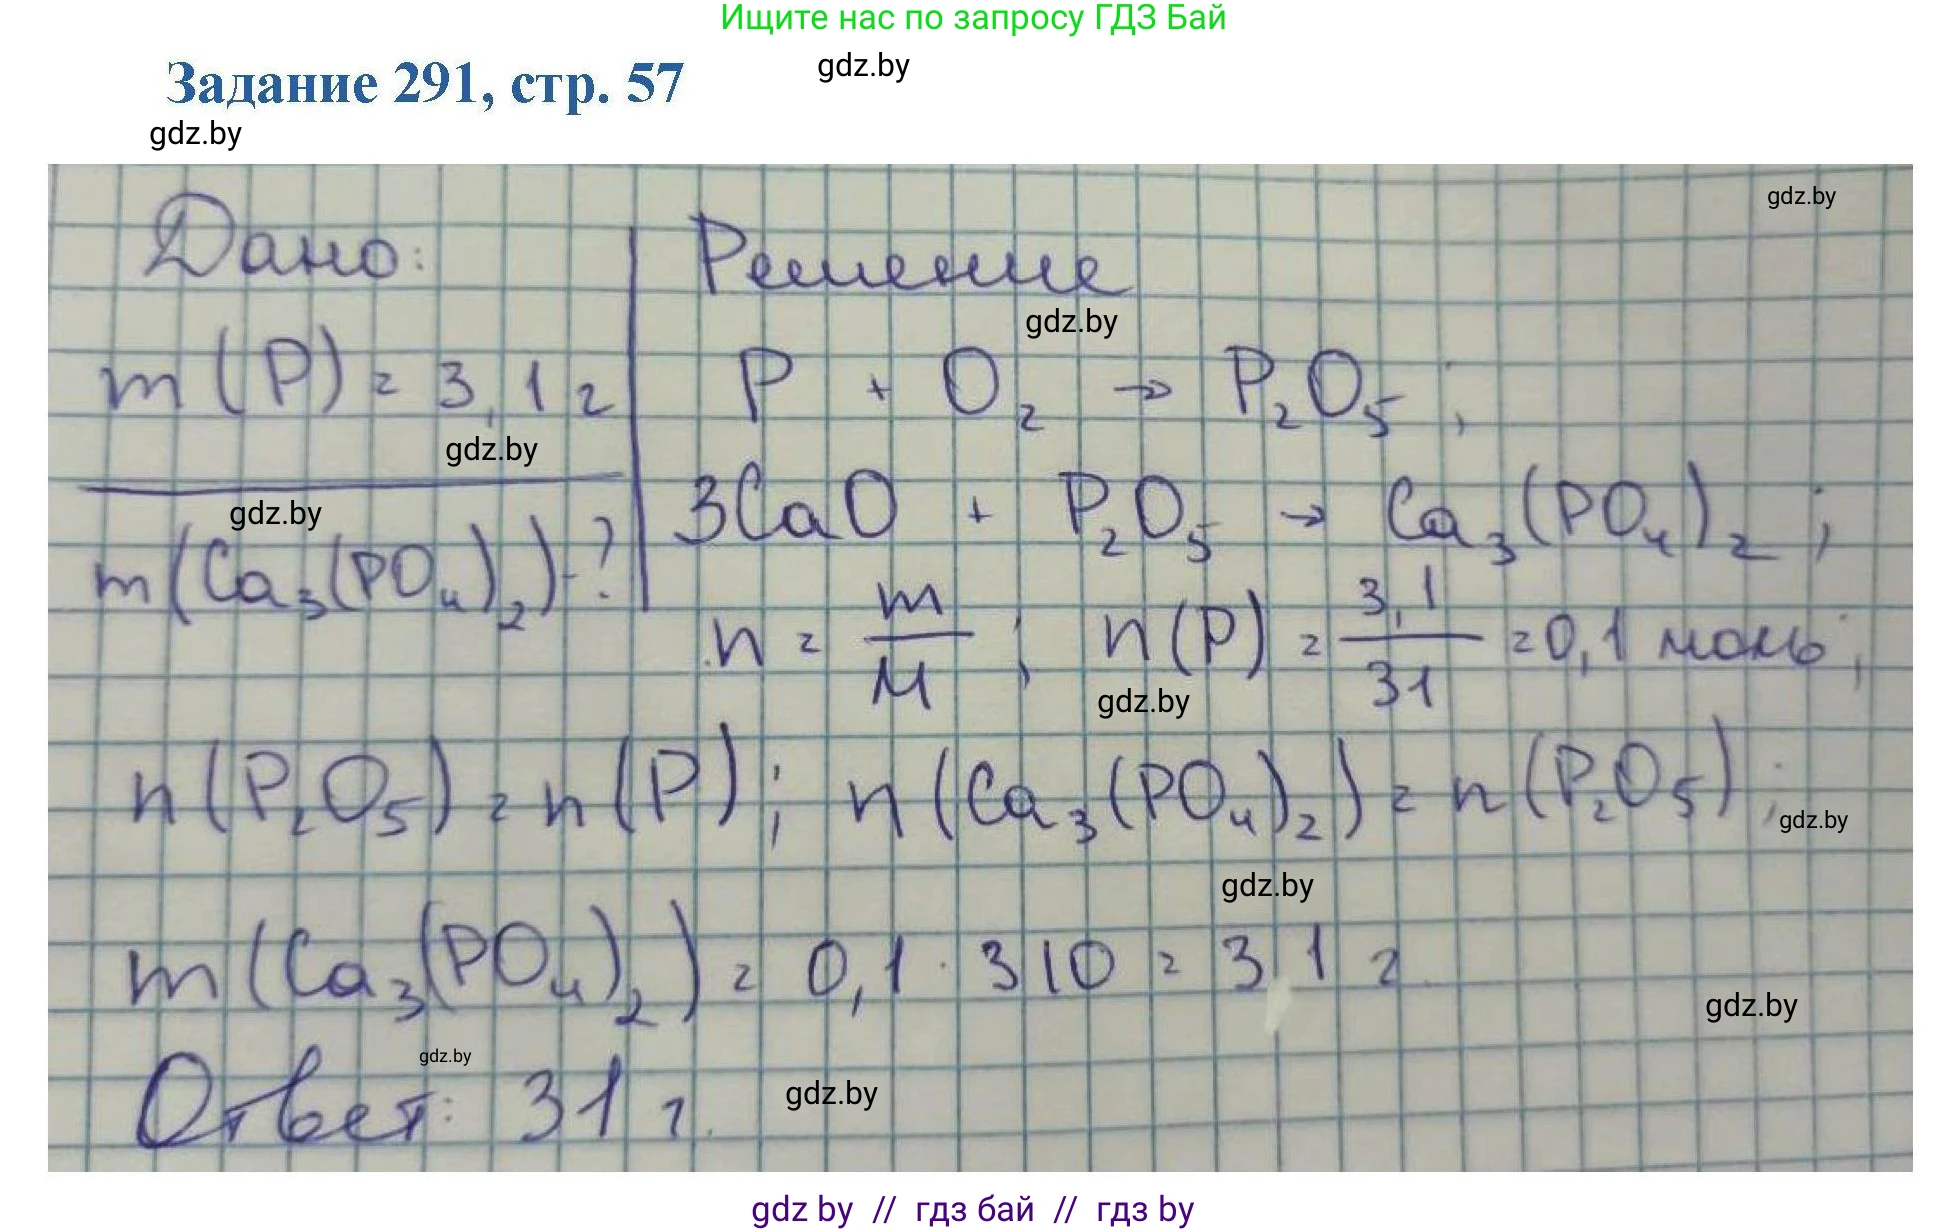 Ищите нас по запросу ГДЗ Бай
Задание 291, стр. 57
gdz.by
gdz.by
gdz.by
Дано:
Решение
gdz.by
m(P) = 3,1 г
P + O₂ → P₂O₅;
gdz.by
gdz.by
3CaO + P₂O₅ → Ca₃(PO₄)₂;
m(Ca₃(PO₄)₂)-?
n = m/M; n(P) = 3,1/31 = 0,1 моль;
gdz.by
n(P₂O₅) = n(P); n(Ca₃(PO₄)₂) = n(P₂O₅);
gdz.by
gdz.by
m(Ca₃(PO₄)₂) = 0,1 · 310 = 31 г.
gdz.by
gdz.by
Ответ: 31 г.
gdz.by
gdz by // гдз бай // гдз by